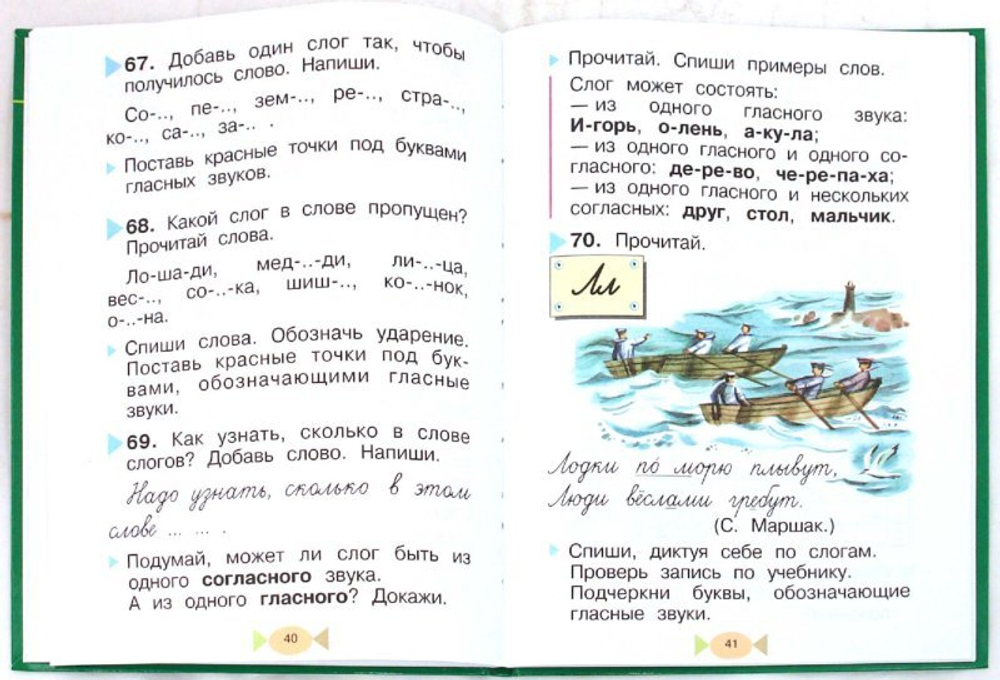 67. Добавь один слог так, чтобы
получилось слово. Напиши.
Со-.., пе-.., зем-.., ре-.., стра-..,
ко-.., са-.., за-.. .
Поставь красные точки под буквами
гласных звуков.
68. Какой слог в слове пропущен?
Прочитай слова.
Ло-ша-ди, мед-..-ди, ли-..-ца,
вес-.., со-..-ка, шиш-.., ко-..-нок,
о-..-на.
Спиши слова. Обозначь ударение.
Поставь красные точки под бук-
вами, обозначающими гласные
звуки.
69. Как узнать, сколько в слове
слогов? Добавь слово. Напиши.
Надо узнать, сколько в этом
слове ... ... .
Подумай, может ли слог быть из
одного согласного звука.
А из одного гласного? Докажи.
40
Прочитай. Спиши примеры слов.
Слог может состоять:
— из одного гласного звука:
И-горь, о-лень, а-ку-ла;
— из одного гласного и одного со-
гласного: де-ре-во, че-ре-па-ха;
— из одного гласного и нескольких
согласных: друг, стол, мальчик.
70. Прочитай.
Лл
Лодки по́ морю плывут,
Люди вёслами гребут.
(С. Маршак.)
Спиши, диктуя себе по слогам.
Проверь запись по учебнику.
Подчеркни буквы, обозначающие
гласные звуки.
41